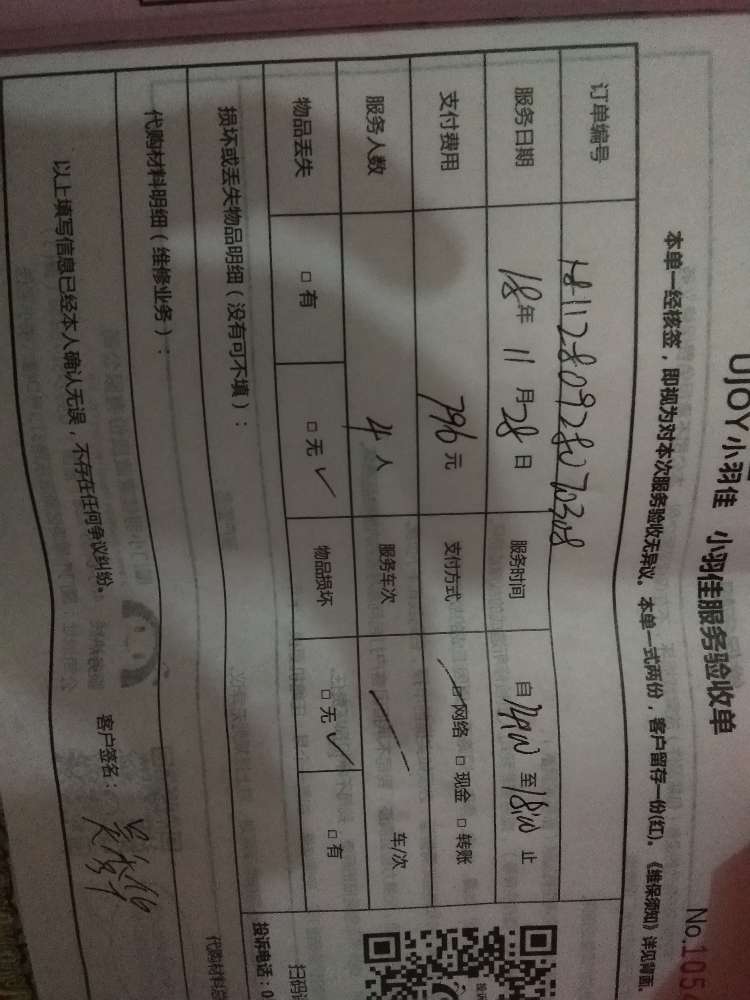 UJOY小羽佳 小羽佳服务验收单
No.105
本单一经核签，即视为对本次服务验收无异议。本单一式两份，客户留存一份(红)。《维保须知》详见背面。
订单编号
服务日期 18年 11月 28日 服务时间 自 至 18:00 止
支付费用 796元 支付方式 □ 网络 □ 现金 □ 转账
服务人数 4人 服务车次 车/次
物品丢失 □ 有 □ 无 ✓ 物品损坏 □ 无 ✓ □ 有
损坏或丢失物品明细（没有可不填）：
代购材料明细（维修业务）：
代购材料
以上填写信息已经本人确认无误，不存在任何争议纠纷。 客户签名：
扫码
投诉电话：0